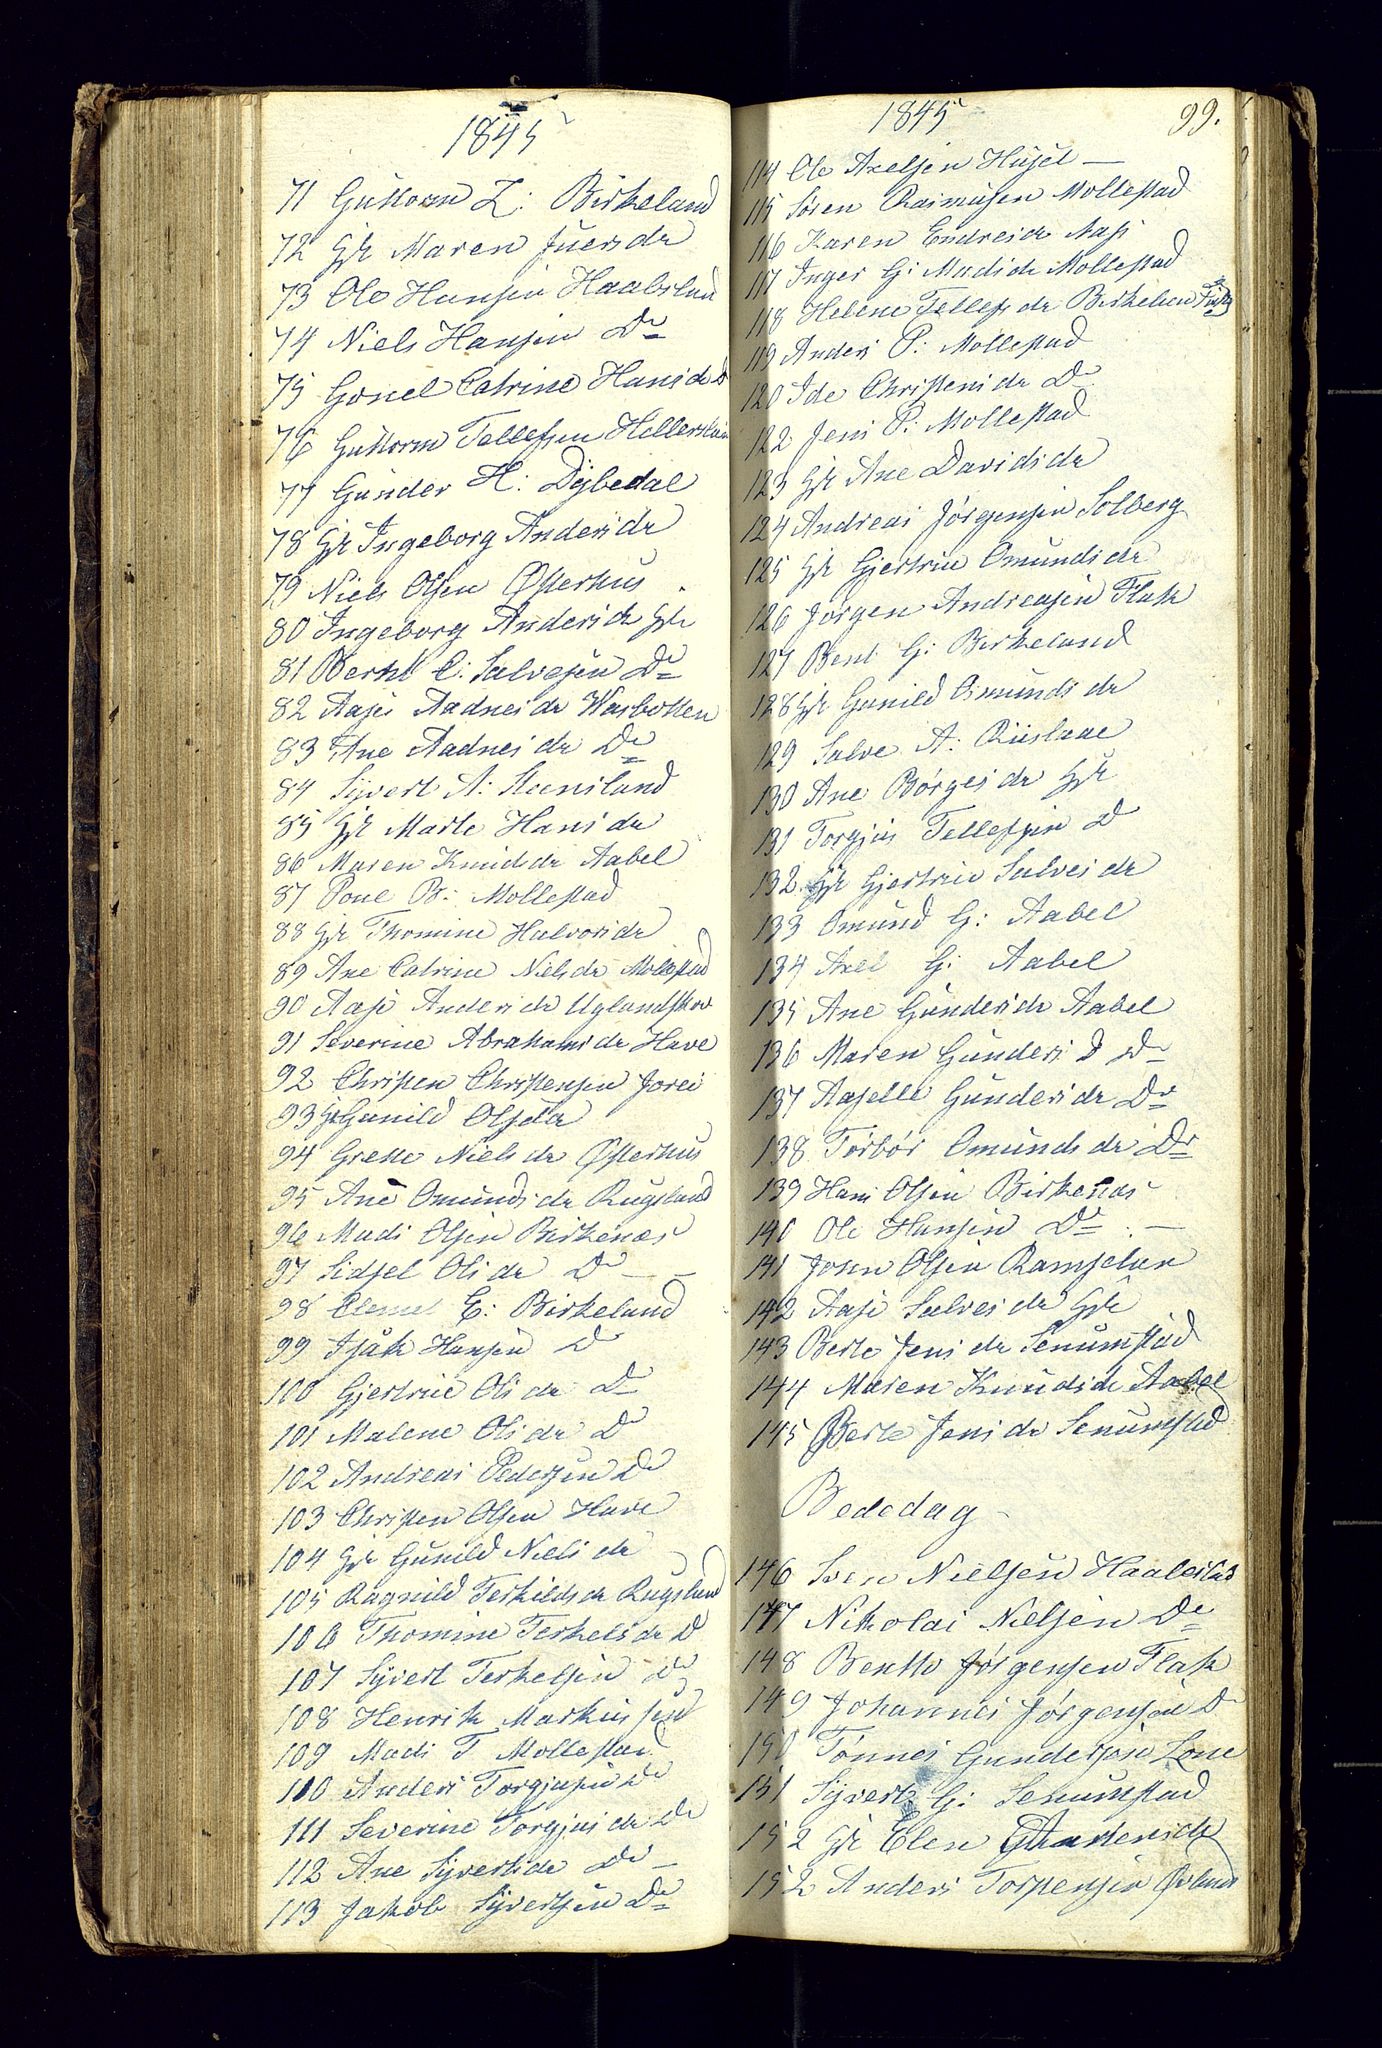 1845
71 Guttorm L: Birkeland
72 Gje Maren Juersdr
73 Ole Hansen Haabesland
74 Niels Hansen Do
75 Gonel Catrine Hansdr
76 Guttorm Tellefsen Hellersland
77 Gunder H: Dybedal
78 Gje Ingeborg Andersdr
79 Niels Olsen Østerhus
80 Ingeborg Andersdr Gje
81 Berthe C: Salvesen Do
82 Aase Aadnesdr Wasbotten
83 Ane Aadnesdr Do
84 Syvert A: Steensland
85 Gje Marte Hansdr
86 Maren Knudsdr Aabel
87 Poul B: Mollestad
88 Gje Thomine Halvorsdr
89 Ane Catrine Nielsdr Mollestad
90 Aase Andersdr Uglandskov
91 Severine Abrahamsdr Have
92 Christen Christensen Jorei
93 Gje Gunild Olsdr
94 Grette Nielsdr Østerhus
95 Ane Omundsdr Rugsland
96 Mads Olsen Birkenæs
97 Sidsel Olsdr Do
98 E: Birkeland
99 Isak Hansen Do
100 Gjertrue Olsdr Do
101 Malene Olsdr Do
102 Andreas Pedersen Do
103 Christen Olsen Have
104 Gje Gunild Nielsdr
105 Ragnild Terkildsdr Rugsland
106 Thomine Terkelsdr Do
107 Syvert Terkelsen Do
108 Henrik Markussen
109 Mads T Mollestad
110 Anders Torgjusen Do
111 Severine Torgjusdr Do
112 Ane Syvertsdr Do
113 Jakob Syvertsen Do
1845 99.
114 Ole Axelsen Husel
115 Søren Rasmusen Mollestad
116 Karen Endresdr Aas
117 Inger G: Madsdr Mollestad
118 Helene Tellefsdr Birkeland
119 Anders P: Mollestad
120 Ide Christensdr Do
122 Jens P: Mollestad
123 Gje Ane Davidsdr
124 Andreas Jørgensen Solberg
125 Gje Gjertrue Omundsdr
126 Jørgen Andreasen Flak
127 Bent G: Birkeland
128 Gje Gunild Omundsdr
129 Salve A: Riislaae
130 Ane Børgesdr Gje
131 Torgjus Tellefsen Do
132 Gje Gjertrue Salvesdr
133 Omund G: Aabel
134 Axel G: Aabel
135 Ane Gundersdr Aabel
136 Maren Gunders D Do
137 Aaselle Gundersdr Do
138 Torbør Omundsdr Do
139 Hans Olsen Birkenæs
140 Ole Hansen Do
141 John Olsen Ramselun
142 Aase Salvesdr Gje
143 Berte Jensdr Senumstad
144 Maren Knudsdr Aabel
145 Berte Jensdr Senumstad
Bededag
146 Sven Nielsen Haabesland
147 Nikolai Nielsen Do
148 Bentto Jørgensen Flak
149 Johannes Jørgensen Do
150 Tønnes Gundersen Lone
151 Syvert G: Senumstad
152 Gje Elen
152 Anders Torstensen